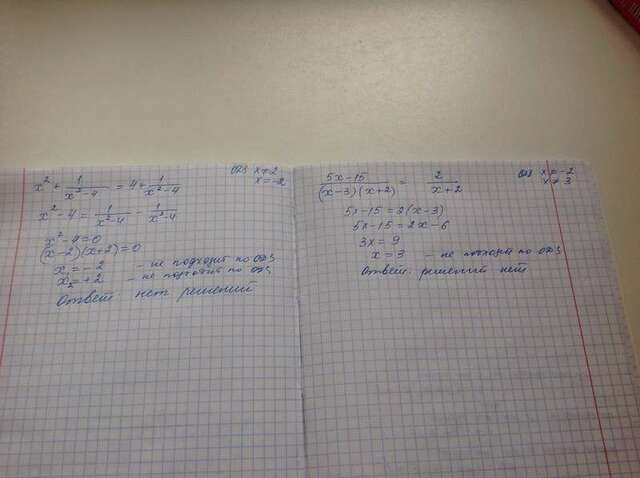 x² + 1/(x²-4) = 4 + 1/(x²-4) ОДЗ x≠2
x≠-2
x² - 4 = 1/(x²-4) - 1/(x²-4)
x² - 4 = 0
(x-2)(x+2)=0
x₁ = -2 - не подходит по ОДЗ
x₂ = +2 - не подходит по ОДЗ
Ответ нет решений
(5x-15)/((x-3)(x+2)) = 2/(x+2) ОДЗ x≠-2
x≠3
5x-15=2(x-3)
5x-15=2x-6
3x = 9
x = 3 - не подходит по ОДЗ
Ответ: решений нет